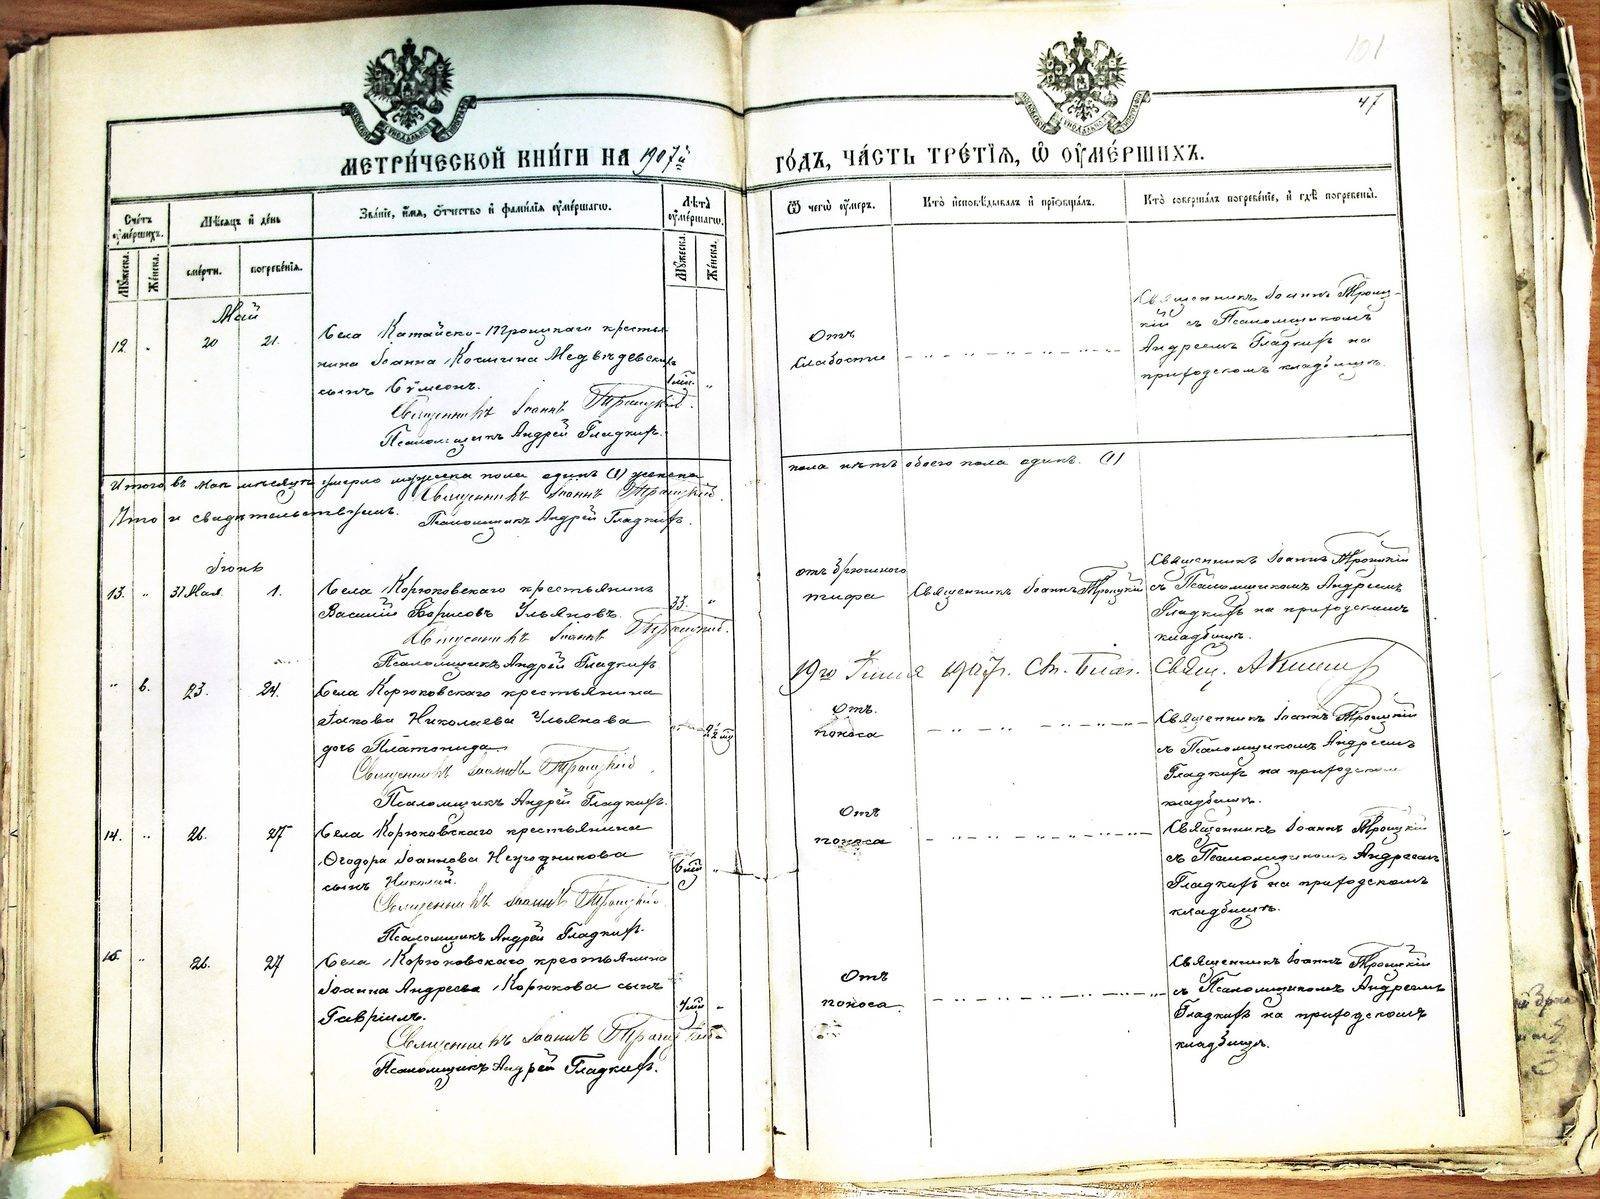 101
47
МЕТРИ́ЧЕСКОЙ КНИ́ГИ НА 1907й
ГО́ДЪ, ЧА́СТЬ ТРЕ́ТІѦ, Ѡ҆ ОУ҆МЕ́РШИХЪ.
Сче́тъ оу҆ме́ршихъ.
Мѣ́сѧцъ и҆ де́нь
Зва́нїе, и҆́мѧ, ѻ҆́тчество и҆ фами́лїѧ оу҆ме́ршагѡ.
Лѣ́та оу҆ме́ршагѡ.
Ѿ чегѡ̀ оу҆́меръ.
Кто̀ и҆сповѣ́дывалъ и҆ прїѻбща́лъ.
Кто̀ соверша́лъ погребе́нїе, и҆ гдѣ̀ погребены̀.
Мꙋ́жеска.
Же́нска.
сме́рти.
погребе́нїѧ.
Мꙋ́жеска.
Же́нска.
Май
12. " 20 21.
Села Катайско-Троицкаго крестья-
нина Іоанна Медвѣдевскихъ
сынъ Сѵмеонъ.
1 мѣс. "
Священникъ Іоаннъ Троицкій.
Псаломщикъ Андрей Гладкихъ.
Отъ
слабости
Священникъ Іоаннъ Троиц-
кій съ Псаломщикомъ
Андреемъ Гладкихъ на
приходскомъ кладбищѣ.
Итого въ маѣ мѣсяцѣ умерло мужеска пола одинъ (1) женска
пола нѣтъ обоего пола одинъ. (1)
Священникъ Іоаннъ Троицкій.
Что и свидѣтельствуемъ.
Псаломщикъ Андрей Гладкихъ.
Іюнь
13. " 31 Мая 1.
Села Корюковскаго крестьянинъ
Василій Борисовъ Ульяновъ.
33. "
Священникъ Іоаннъ Троицкій.
Псаломщикъ Андрей Гладкихъ
отъ брюшного
тифа
Священникъ Іоаннъ Троицкій
Священникъ Іоаннъ Троицкій
съ Псаломщикомъ Андреемъ
Гладкихъ на приходскомъ
кладбищѣ.
19го Іюня 1907г. Св. Благ. Свящ.
" 6. 23. 24.
Села Корюковскаго крестьянина
Іакова Николаева Ульянова
дочь Платонида
Священникъ Іоаннъ Троицкій.
Псаломщикъ Андрей Гладкихъ.
Отъ
поноса
Священникъ Іоаннъ Троицкій
съ Псаломщикомъ Андреемъ
Гладкихъ на приходскомъ
кладбищѣ.
14. " 26. 27
Села Корюковскаго крестьянина
Ѳеодора Іоаннова Неугодникова
сынъ Николай.
6 мѣс "
Священникъ Іоаннъ Троицкій
Псаломщикъ Андрей Гладкихъ.
Отъ
поноса
Священникъ Іоаннъ Троицкій
съ Псаломщикомъ Андреемъ
Гладкихъ на приходскомъ
кладбищѣ.
15. " 26. 27
Села Корюковскаго крестьянина
Іоанна Андреева Корюкова сынъ
Гавріилъ.
Священникъ Іоаннъ Троицкій
Псаломщикъ Андрей Гладкихъ.
Отъ
поноса.
Священникъ Іоаннъ Троицкій
съ Псаломщикомъ Андреемъ
Гладкихъ на приходскомъ
кладбищѣ.